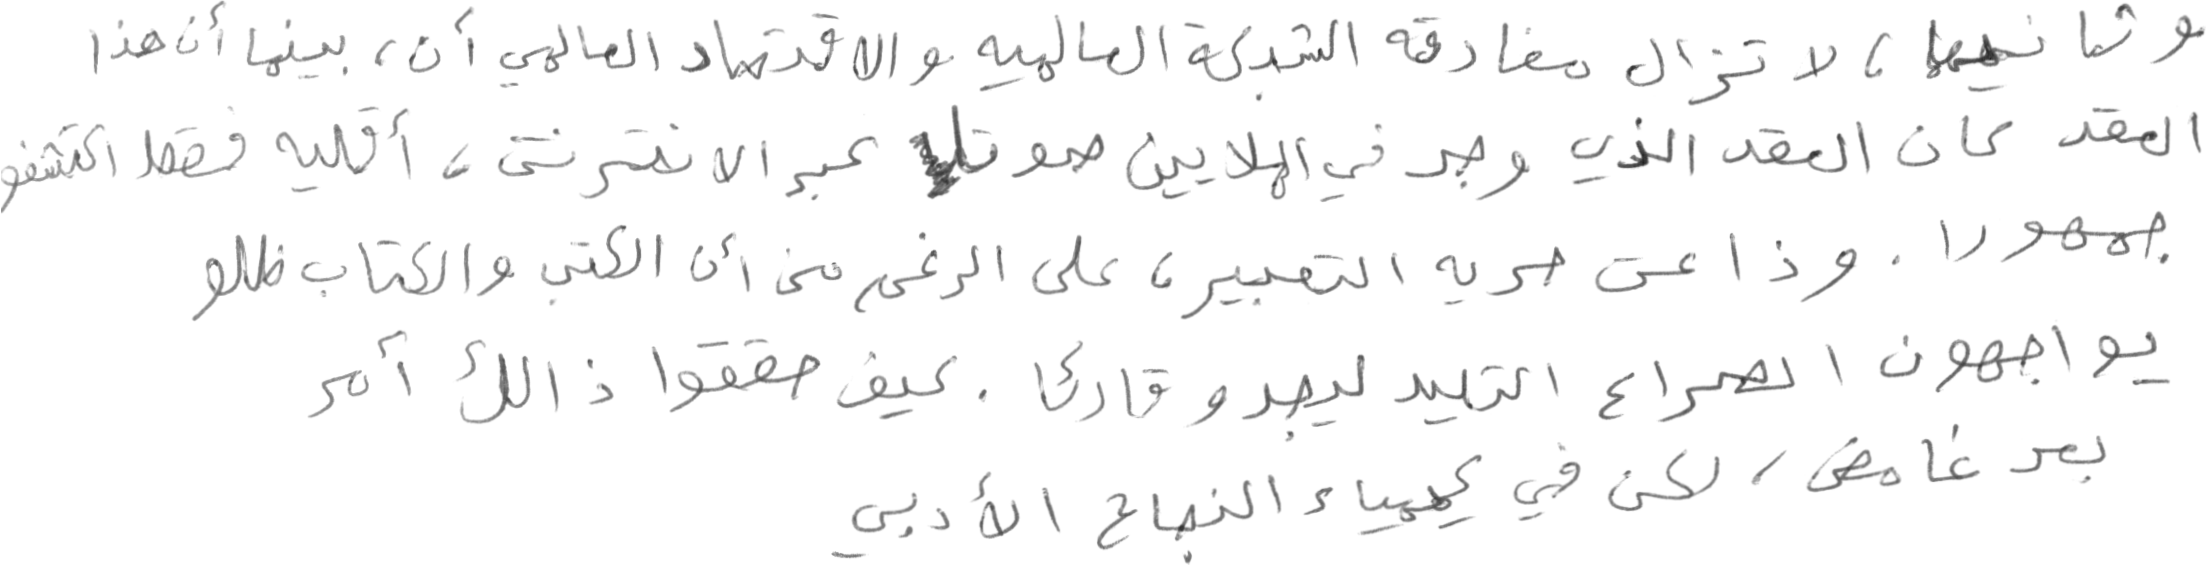 وثانيهما، لا تزال مفارقه الشبكة العالميه والاقتصاد العالمي أن، بينما أن هذا
العقد كان العقد الذي وجد في الملايين صوتا عبر الانترنت، أقليه فقط اكتشفو
جمهورا. وذاعت حريه التعبير، على الرغم من أن الكتب والكتاب ظلو
يواجهون الصراع التليد ليجدو قاركا. كيف حققوا ذالك أمر
بعد غامض، لكن في كيمياء النجاح الأدبي